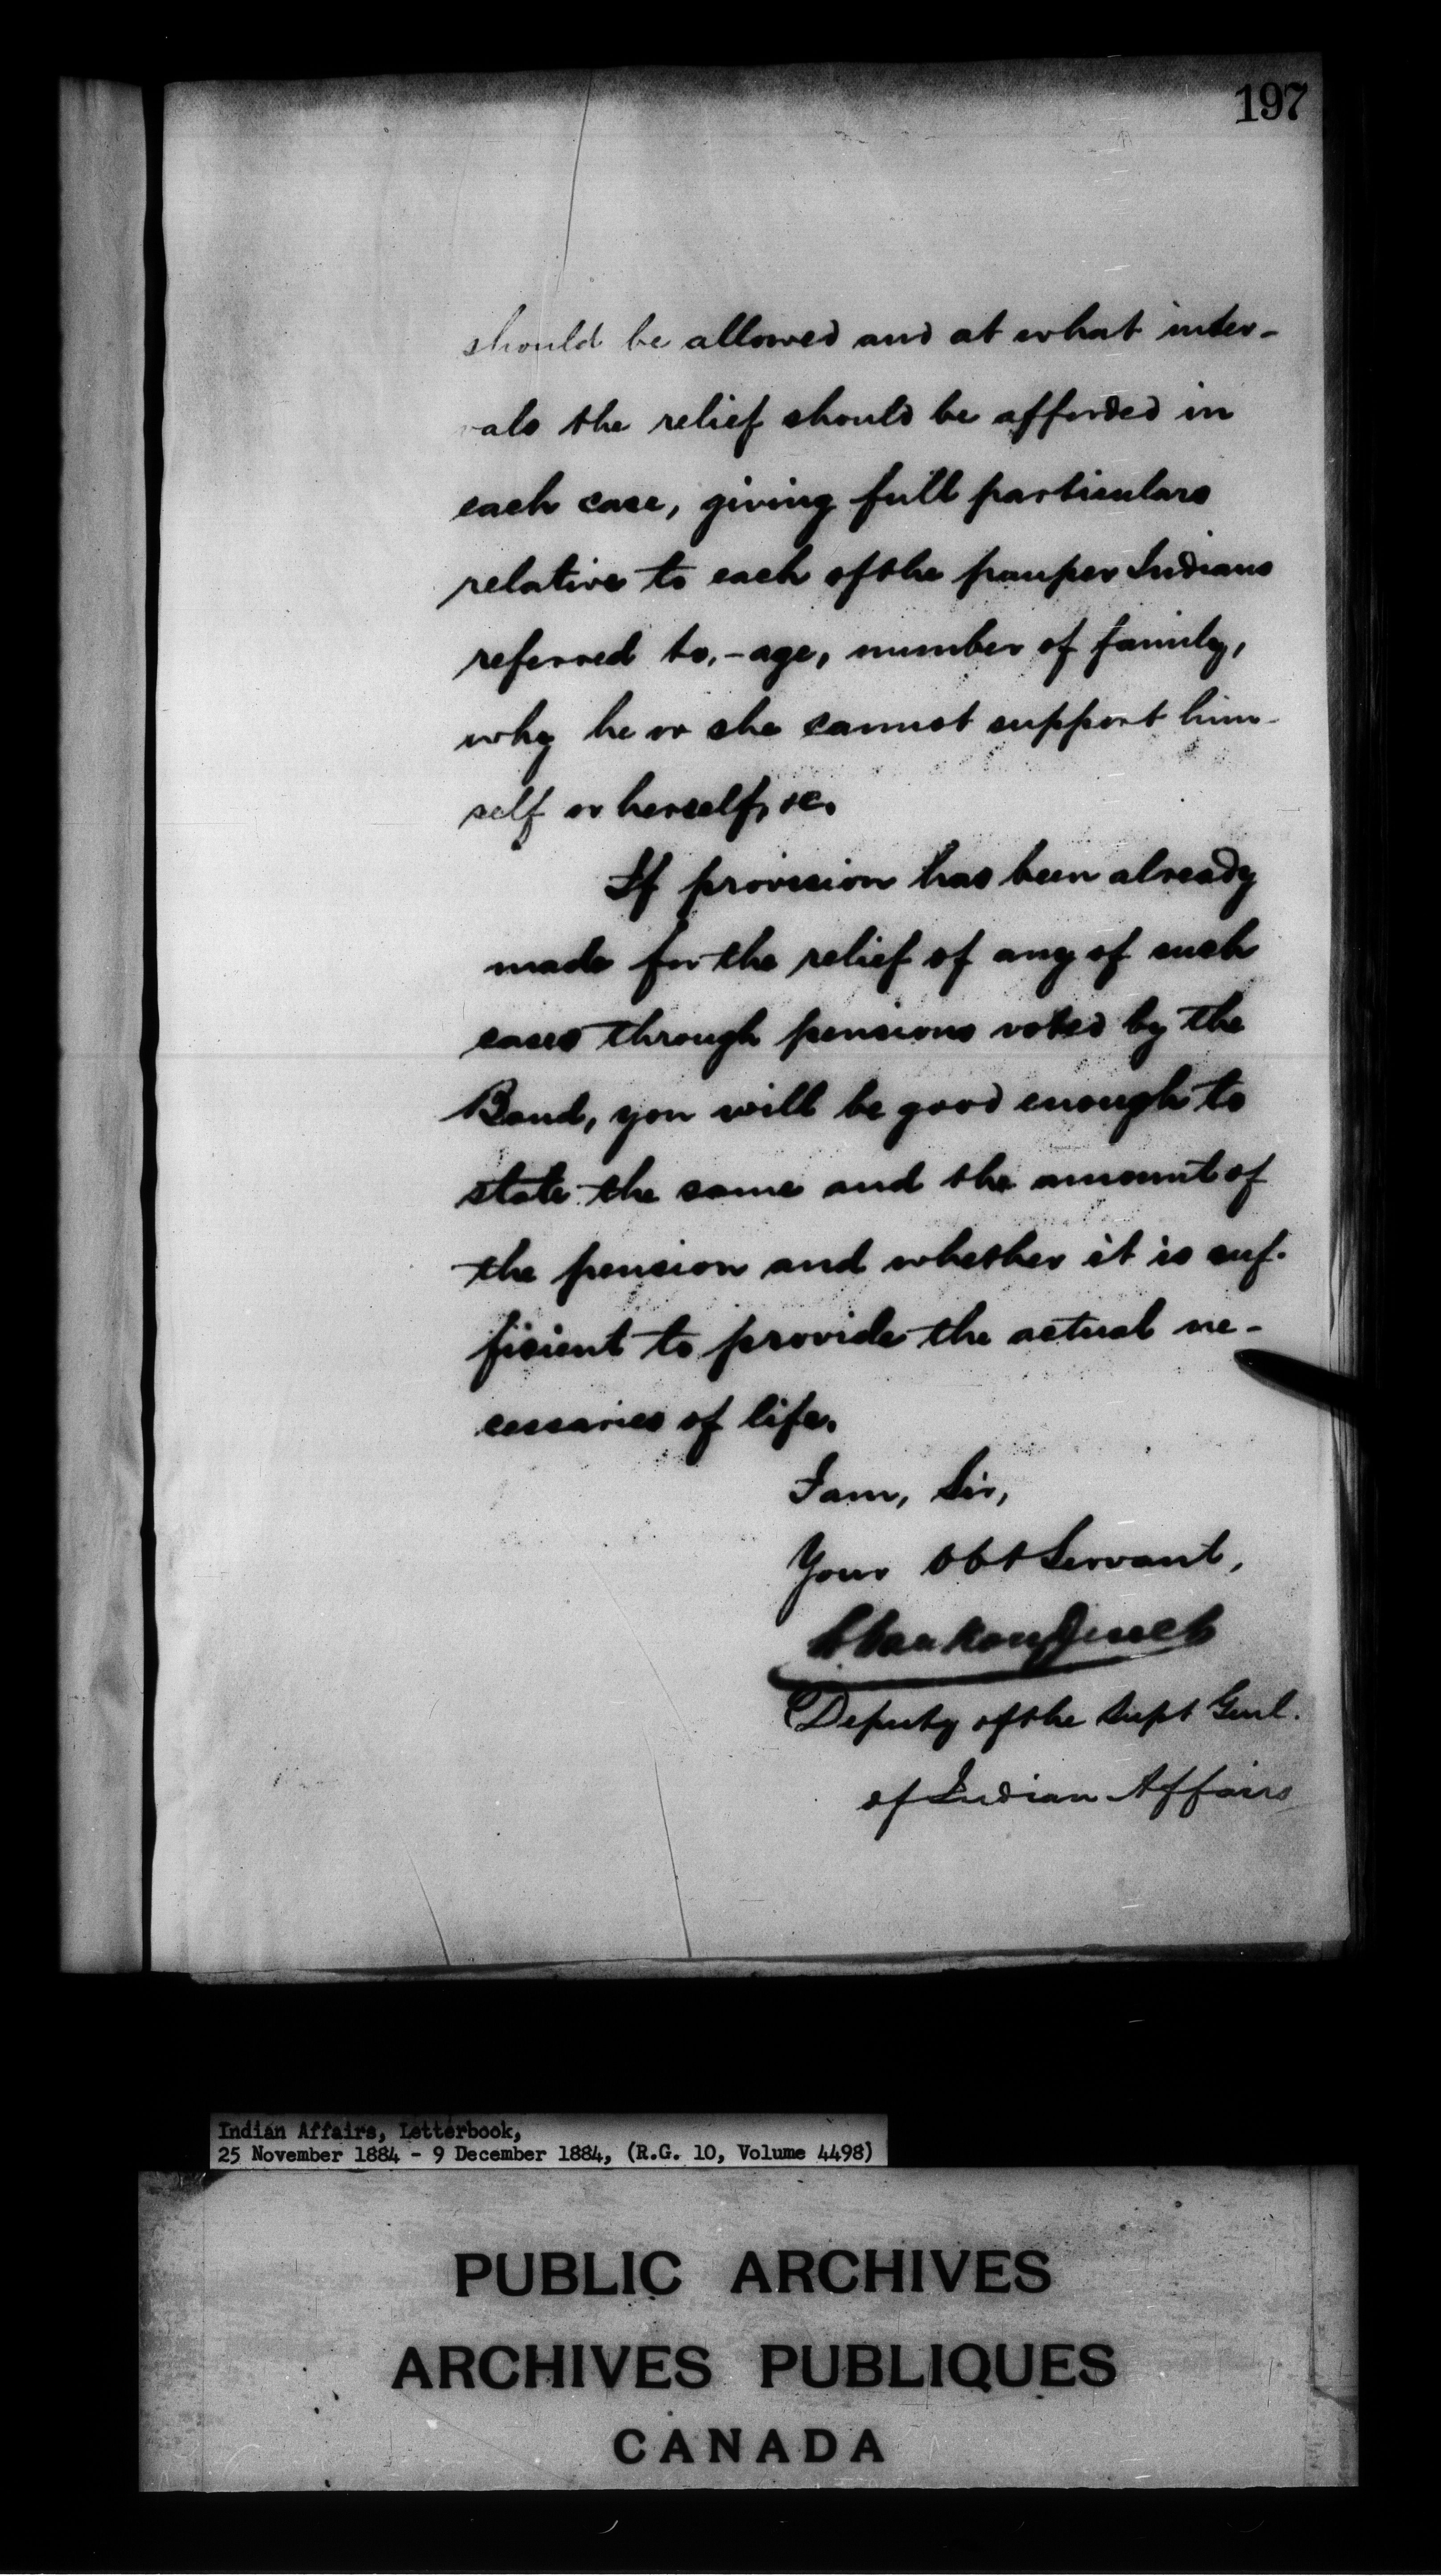 197
should be allowed and at what inter-
vals the relief should be afforded in
each case, giving full particulars
relative to each of the pauper Indians
referred to,-age, number of family,
why he or she cannot support him-
self or herself, &c.
If provision has been already
made for the relief of any of such
cases through pensions voted by the
Band, you will be good enough to
state the same and the amount of
the pension and whether it is suf-
ficient to provide the actual ne-
cessaries of life.
I am, Sir,
Your Obt Servant,
Deputy of the Supt Genl.
of Indian Affairs
Indian Affairs, Letterbook,
25 November 1884 - 9 December 1884, (R.G. 10, Volume 4498)
PUBLIC ARCHIVES
ARCHIVES PUBLIQUES
CANADA